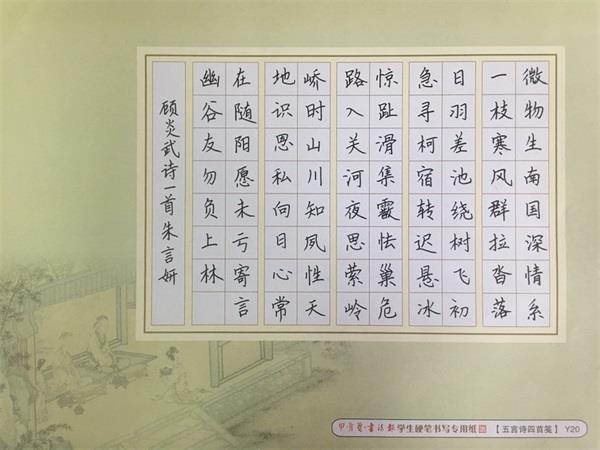 微物生南国深情系
一枝寒风群拉沓落
日羽差池绕树飞初
急寻柯宿转迟悬冰
惊趾滑集霰怯巢危
路入关河夜思萦岭
峤时山川知夙性天
地识思私向日心常
在随阳愿未亏寄言
幽谷友勿负上林
顾炎武诗一首朱言妍
甲骨艺·书法报 学生硬笔书写专用纸 【五言诗四首笺】 Y20